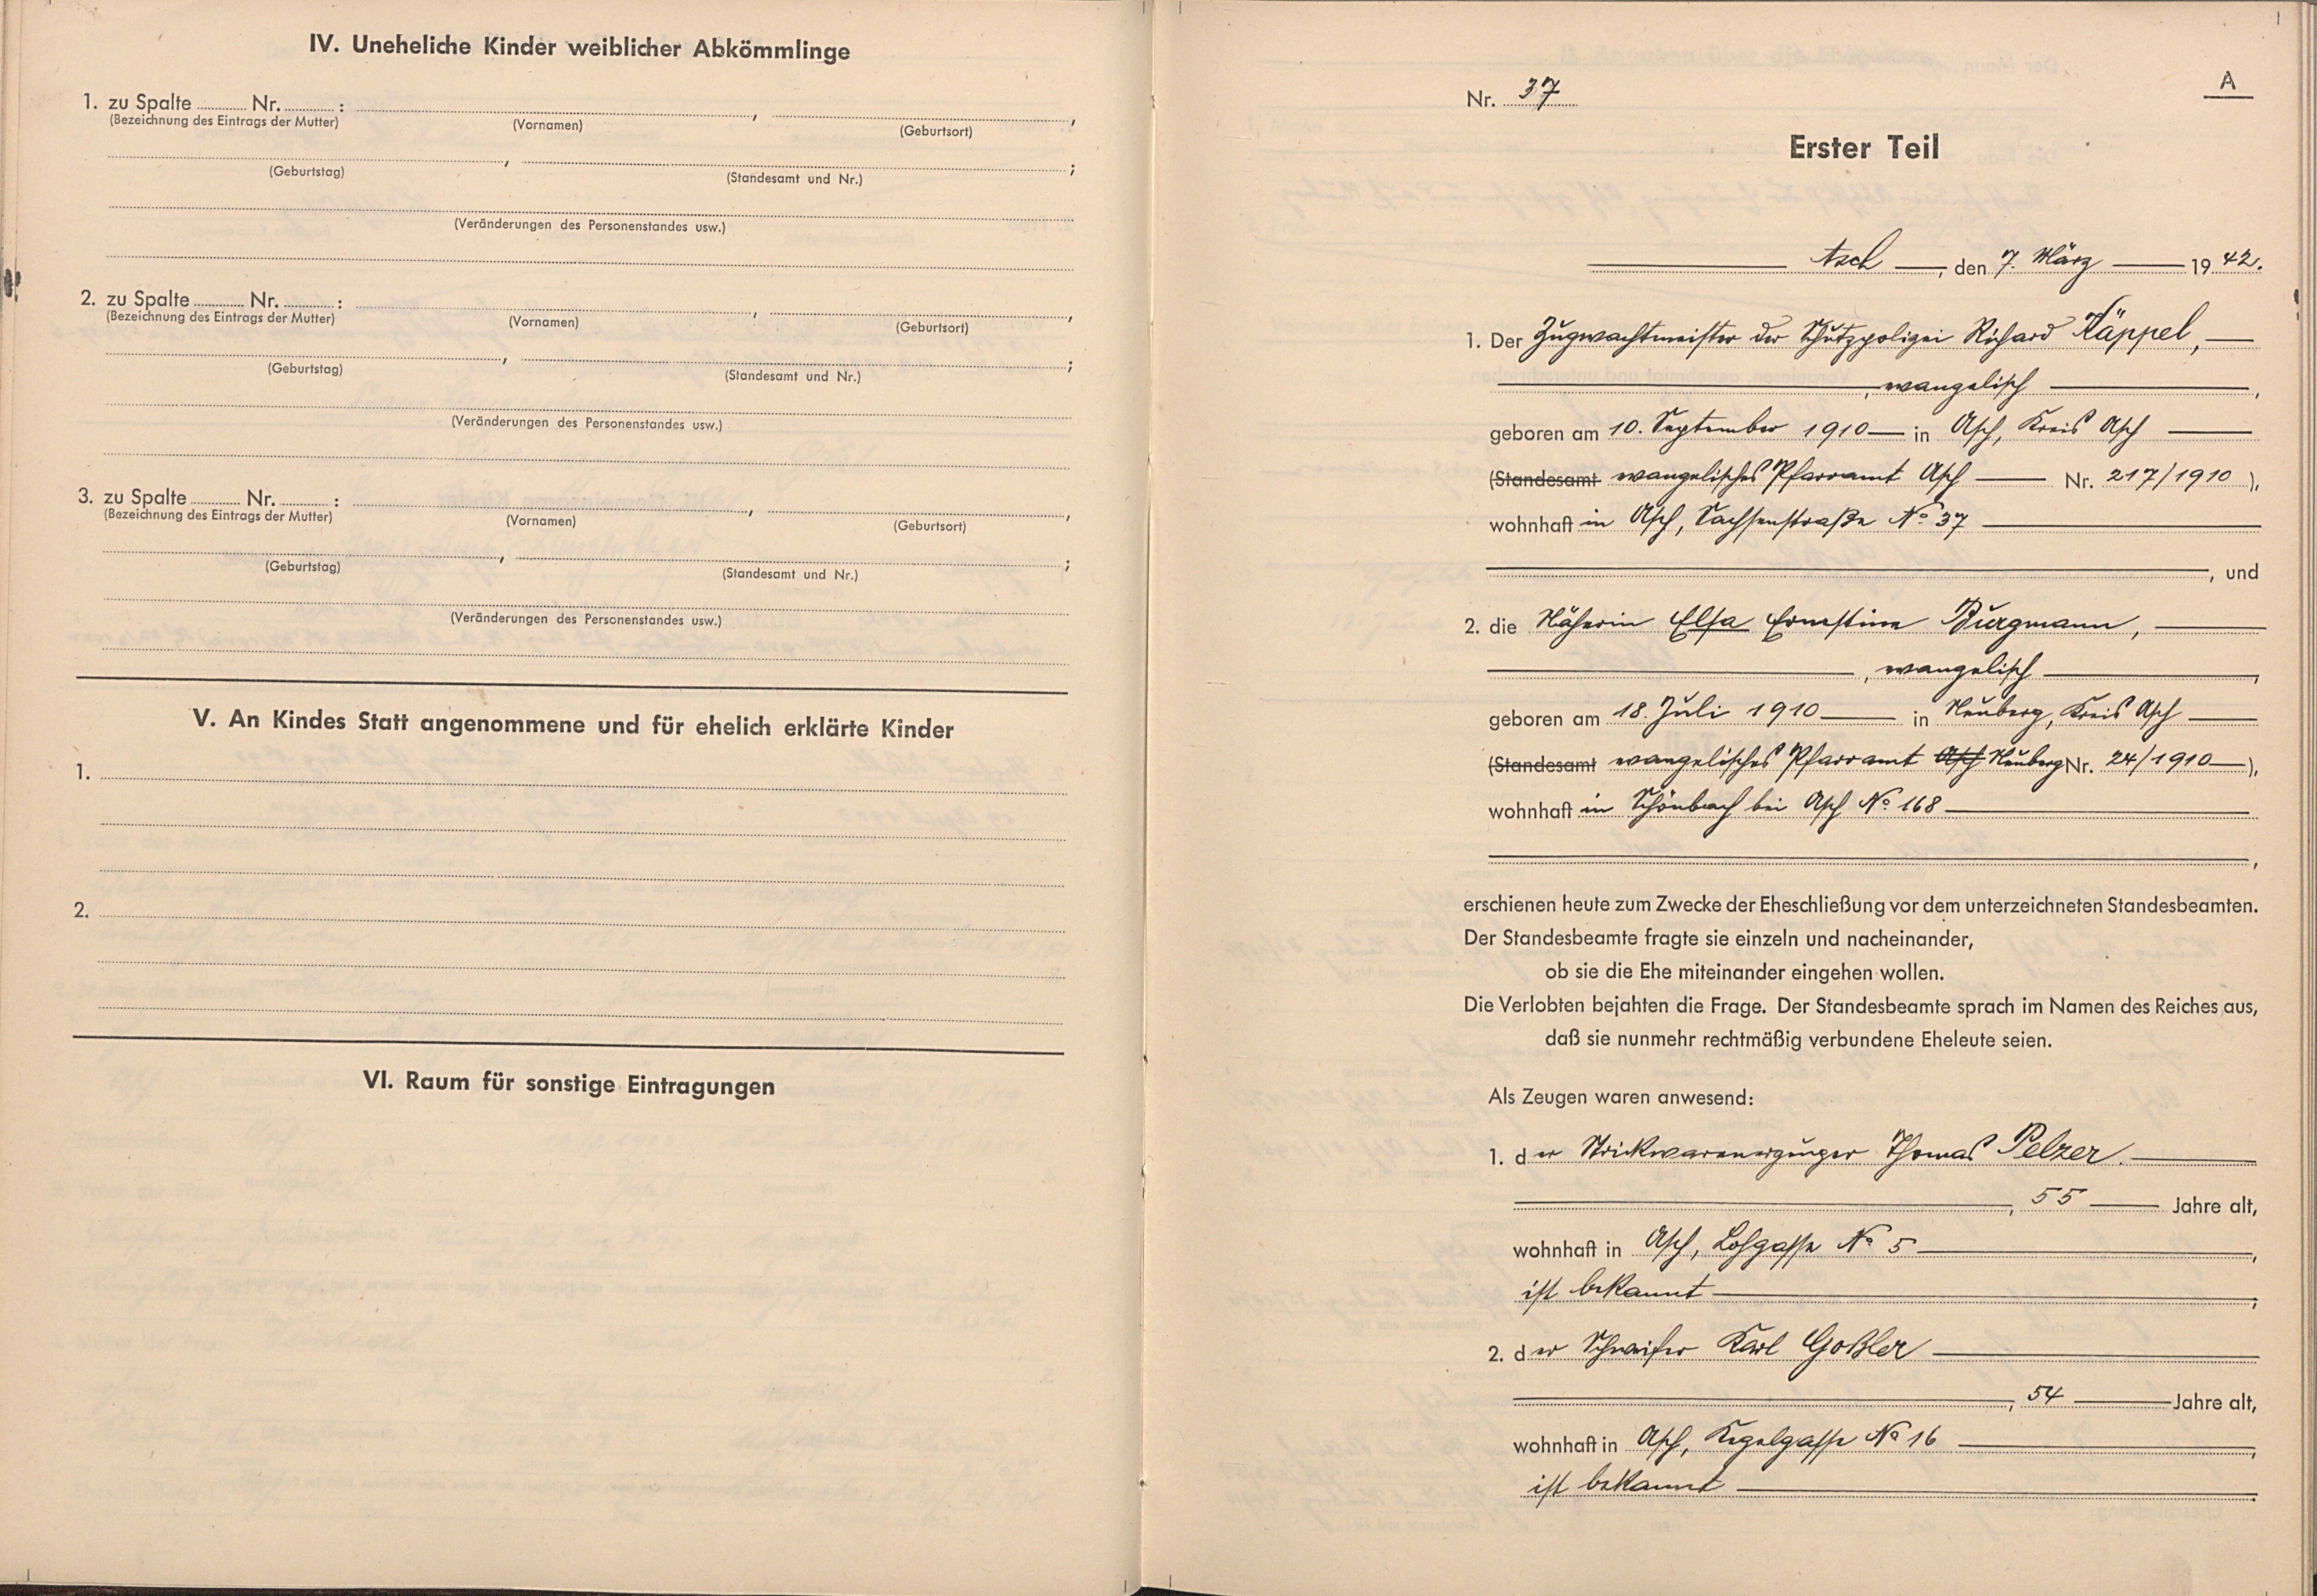 IV. Uneheliche Kinder weiblicher Abkömmlinge
1. zu Spalte Nr. : , ,
(Bezeichnung des Eintrags der Mutter) (Vornamen) (Geburtsort)
, ;
(Geburtstag) (Standesamt und Nr.)
(Veränderungen des Personenstandes usw.)
2. zu Spalte Nr. : , ,
(Bezeichnung des Eintrags der Mutter) (Vornamen) (Geburtsort)
, ;
(Geburtstag) (Standesamt und Nr.)
(Veränderungen des Personenstandes usw.)
3. zu Spalte Nr. : , ,
(Bezeichnung des Eintrags der Mutter) (Vornamen) (Geburtsort)
, ;
(Geburtstag) (Standesamt und Nr.)
(Veränderungen des Personenstandes usw.)
V. An Kindes Statt angenommene und für ehelich erklärte Kinder
1.
2.
VI. Raum für sonstige Eintragungen
A
Nr. 37
Erster Teil
Asch, den 7. März 1942.
1. Der Zugwachtmeister der Schutzpolizei Richard Käppel,
, evangelisch,
geboren am 10. September 1910 in Asch, Kreis Asch
(Standesamt evangelisches Pfarramt Asch Nr. 217/1910),
wohnhaft in Asch, Sachsenstraße No 37
, und
2. die Näherin Elsa Ernestine Burgmann,
, evangelisch,
geboren am 18. Juli 1910 in Neuberg, Kreis Asch
(Standesamt evangelisches Pfarramt Asch Neuberg Nr. 24/1910),
wohnhaft in Schönbach bei Asch No 168
,
erschienen heute zum Zwecke der Eheschließung vor dem unterzeichneten Standesbeamten.
Der Standesbeamte fragte sie einzeln und nacheinander,
ob sie die Ehe miteinander eingehen wollen.
Die Verlobten bejahten die Frage. Der Standesbeamte sprach im Namen des Reiches aus,
daß sie nunmehr rechtmäßig verbundene Eheleute seien.
Als Zeugen waren anwesend:
1. der Strickwarenerzeuger Thomas Pelzer.
, 55 Jahre alt,
wohnhaft in Asch, Lohgasse No 5,
ist bekannt;
2. der Schweifer Karl Goßler
, 54 Jahre alt,
wohnhaft in Asch, Kegelgasse No 16,
ist bekannt.